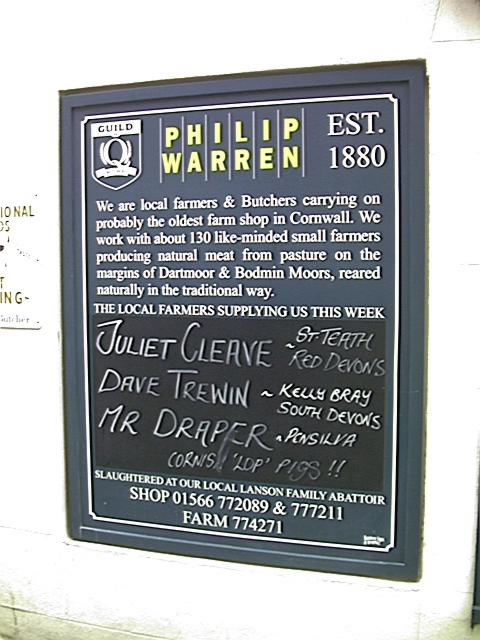 IONAL
DS
T
ING~
Butcher
GUILD
Q
PHILIP
WARREN
EST.
1880
We are local farmers & Butchers carrying on
probably the oldest farm shop in Cornwall. We
work with about 130 like-minded small farmers
producing natural meat from pasture on the
margins of Dartmoor & Bodmin Moors, reared
naturally in the traditional way.
THE LOCAL FARMERS SUPPLYING US THIS WEEK
JULIET CLEAVE ~ ST-TEATH
RED DEVONS
DAVE TREWIN ~ KELLY BRAY
SOUTH DEVONS
MR DRAPER ~ PENSILVA
CORNISH 'LOP' PIGS!!
SLAUGHTERED AT OUR LOCAL LANSON FAMILY ABATTOIR
SHOP 01566 772089 & 777211
FARM 774271